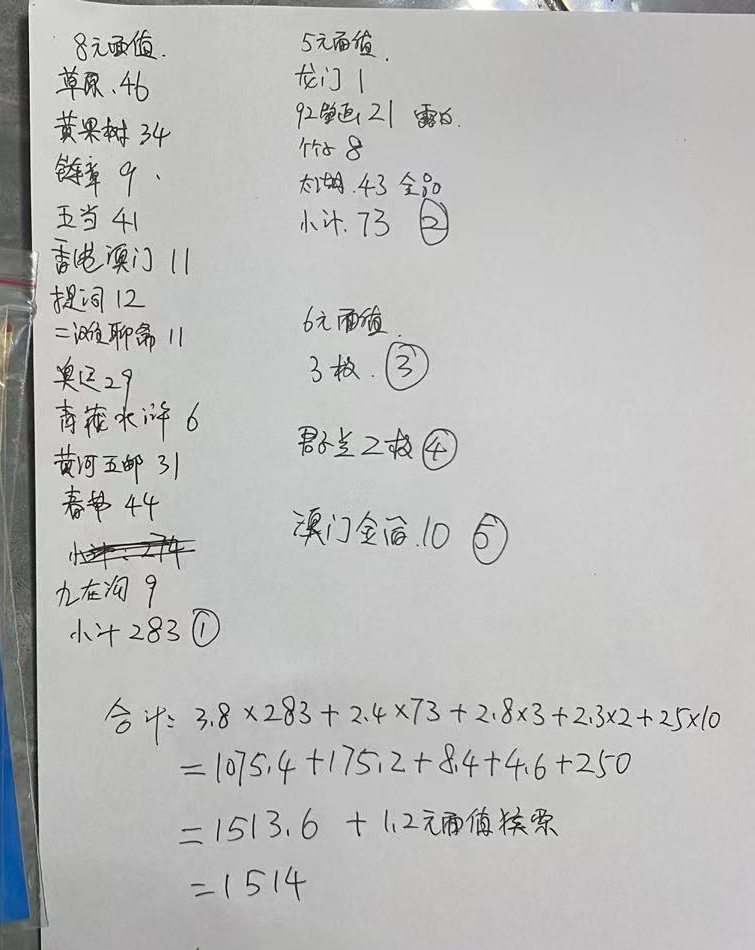 8元面值.
草原.46
黄果树 34
9.
五当 41
香港澳门 11
提词 12
二滩聊斋 11
奥运29
青藏水浒 6
黄河五邮 31
春节 44
小计.274
九在沟 9
小计 283 ①
5元面值.
龙门 1
92 21
竹子 8
太湖.43 全品
小计.73 ②
6元面值.
3枚.③
君子兰2枚④
澳门全.10 ⑤
合计: 3.8×283+2.4×73+2.8×3+2.3×2+25×10
=1075.4+175.2+8.4+4.6+250
=1513.6 +1.2元面值猴票
=1514